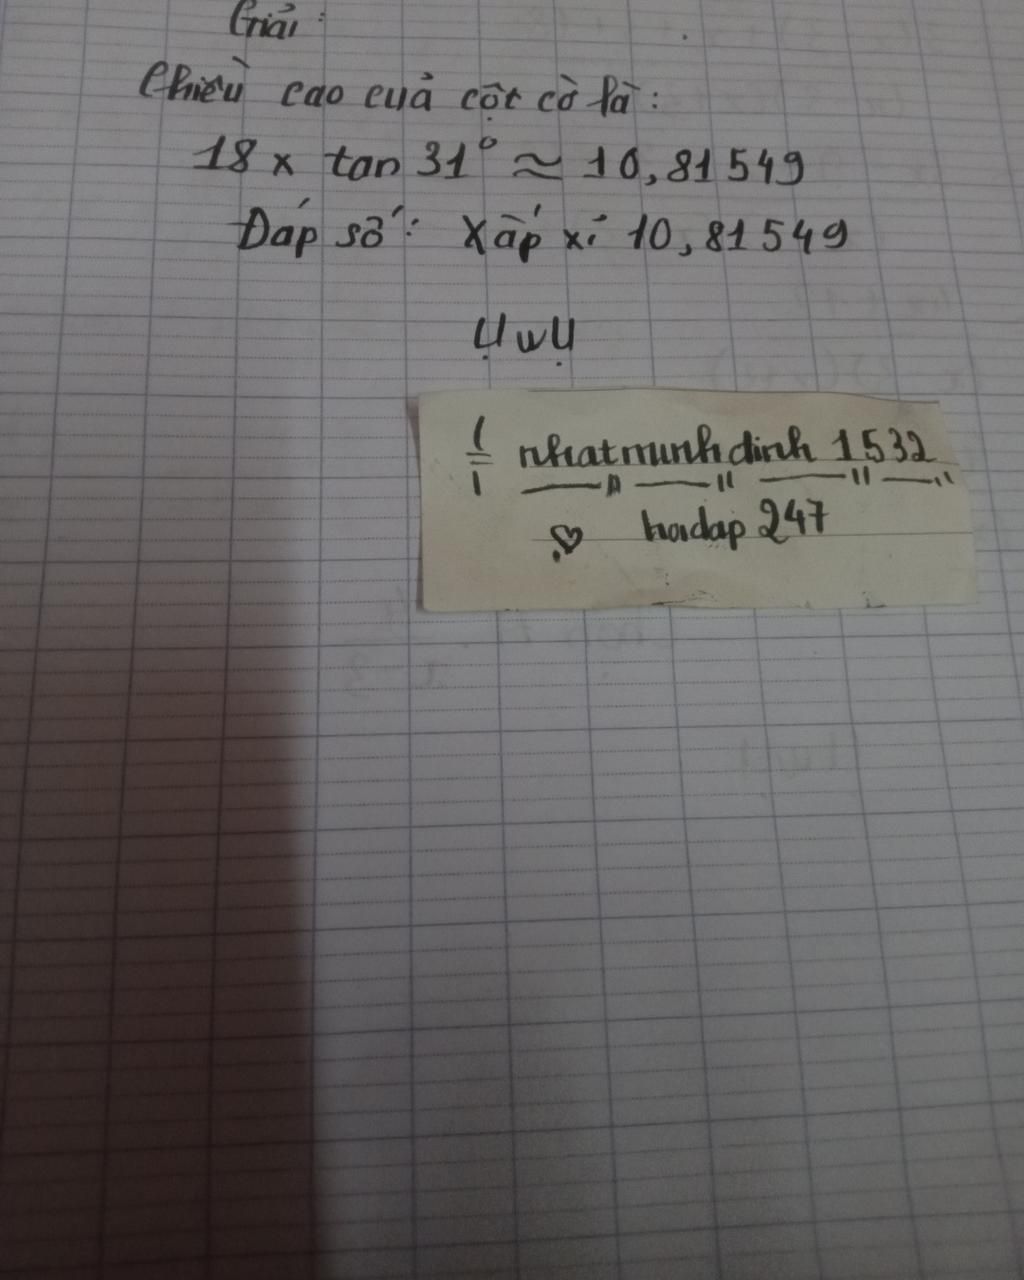 Giải:
Chiều cao cuả cột cờ là:
18 x tan 31° ≈ 10,81549
Đáp số: Xấp xỉ 10,81549
ỤwỤ
nhatminhdinh 1532
hoidap 247